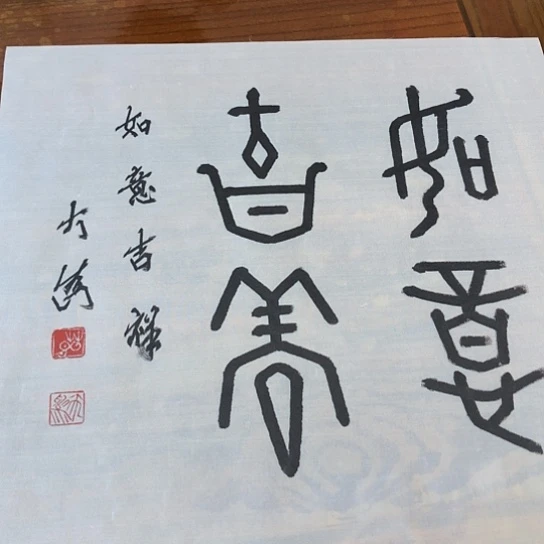 如意
吉羊
如意吉祥